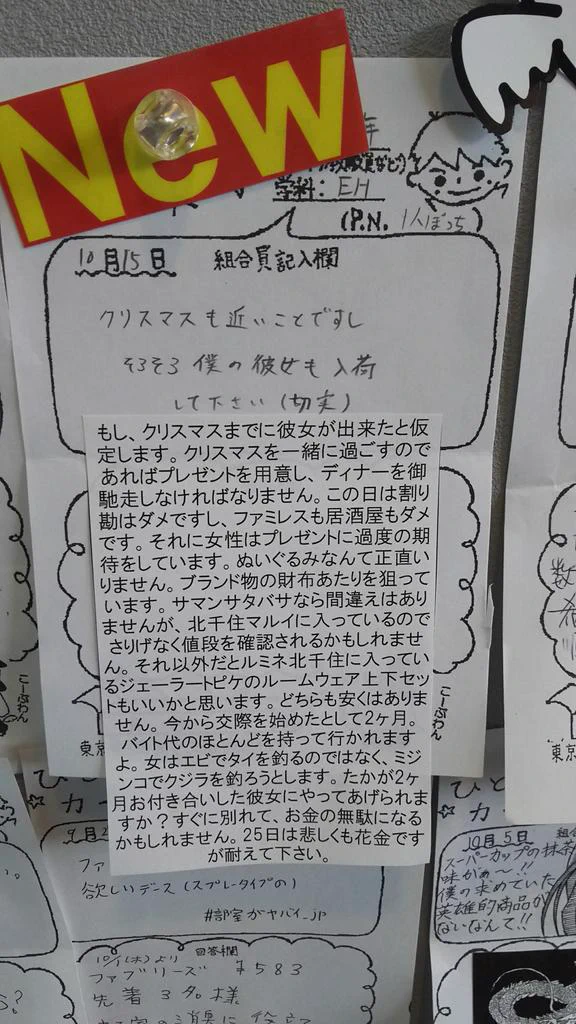 New
年
学科: EH
(P.N. 1人ぼっち)
10月15日 組合員記入欄
クリスマスも近いことですし
そろそろ僕の彼女も入荷
して下さい(切実)
もし、クリスマスまでに彼女が出来たと仮
定します。クリスマスを一緒に過ごすので
あればプレゼントを用意し、ディナーを御
馳走しなければなりません。この日は割り
勘はダメですし、ファミレスも居酒屋もダメ
です。それに女性はプレゼントに過度の期
待をしています。ぬいぐるみなんて正直い
りません。ブランド物の財布あたりを狙って
います。サマンサタバサなら間違えはあり
ませんが、北千住マルイに入っているので
さりげなく値段を確認されるかもしれませ
ん。それ以外だとルミネ北千住に入ってい
るジェーラートピケのルームウェア上下セッ
トもいいかと思います。どちらも安くはありま
せん。今から交際を始めたとして2ヶ月。
バイト代のほとんどを持って行かれます
よ。女はエビでタイを釣るのではなく、ミジ
ンコでクジラを釣ろうとします。たかが2ヶ
月お付き合いした彼女にやってあげられま
すか?すぐに別れて、お金の無駄になる
かもしれません。25日は悲しくも花金です
が耐えて下さい。
こーぷわん
こーぷわん
東京
東京
数
ひと
カー
9月2
ファ
欲しいデース(スプレータイプの)
#部室がヤバイ_jp
10/1(木)より 回答欄
ファブリーズ ¥583
先着3名様
ひと
カー
10月5日 組
スーパーカップの抹茶
味がぁ〜!!
僕の求めていた
英雄的商品が
ないなんて!!